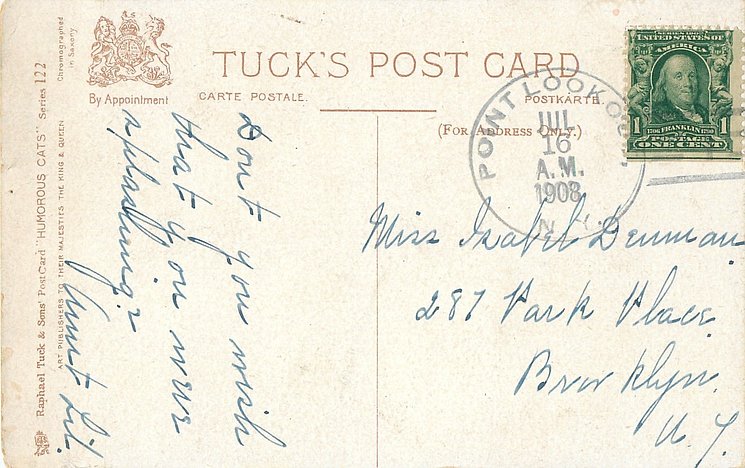 TUCK'S POST CARD
By Appointment
CARTE POSTALE.
POSTKARTE.
(FOR ADDRESS ONLY.)
SERIES 1902
UNITED STATES OF
AMERICA
1 1706 FRANKLIN 1790 1
POSTAGE
ONE CENT
POINT LOOKO
JUL
16
A.M.
1908
N.Y.
Miss Isabel Denman
287 Park Place
Brooklyn.
N.Y.
Dont you wish
that you were
splashing?
Aunt Lil.
Chromographed
in Saxony
Raphael Tuck & Sons' Post Card "HUMOROUS CATS" Series 122
ART PUBLISHERS TO THEIR MAJESTIES THE KING & QUEEN